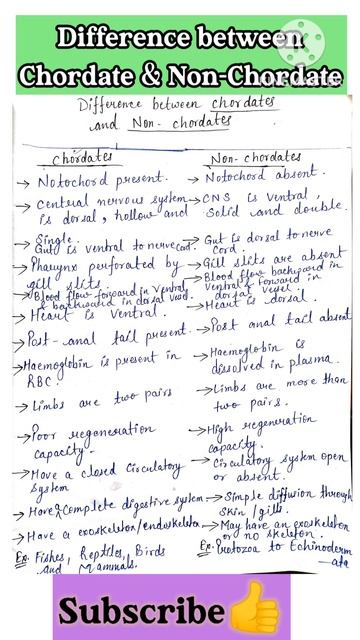 Difference between
Chordate & Non-Chordate
Difference between chordates
and Non-chordates
Chordates
→ Notochord present.
→ Central nervous system
is dorsal, hollow and
Single.
→ Gut is ventral to nerve cord.
→ Pharynx perforated by
gill slits.
→ Blood flow forward in ventral
& backward in dorsal vessel.
→ Heart is ventral.
→ Post-anal tail present.
→ Haemoglobin is present in
RBC.
→ Limbs are two pairs
→ Poor regeneration
capacity.
→ Have a closed circulatory
system
→ Have a complete digestive system
→ Have a exoskeleton/endoskeleton
Ex. Fishes, Reptiles, Birds
and Mammals.
Non-chordates
→ Notochord absent.
→ CNS is ventral,
solid and double.
→ Gut is dorsal to nerve
cord.
→ Gill slits are absent
→ Blood flow backward in
ventral & forward in
dorsal vessel.
→ Heart is dorsal.
→ Post anal tail absent
→ Haemoglobin is
dissolved in plasma.
→ Limbs are more than
two pairs.
→ High regeneration
capacity.
→ Circulatory system open
or absent.
→ Simple diffusion through
skin/gills.
→ May have an exoskeleton
or no skeleton.
Ex. Protozoa to Echinoderm
-ata
Subscribe